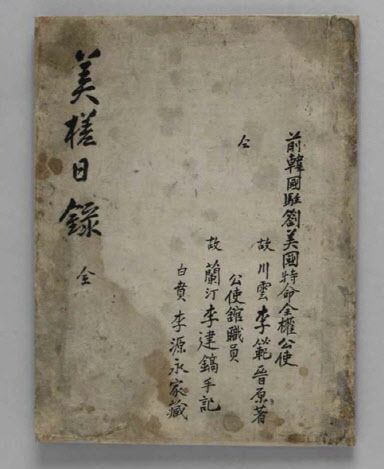 前韓國駐劄美國特命全權公使
故川雲李範晋原著
仝公使舘職員
故蘭汀李建鎬手記
白賁李源永家藏
美槎日錄 全